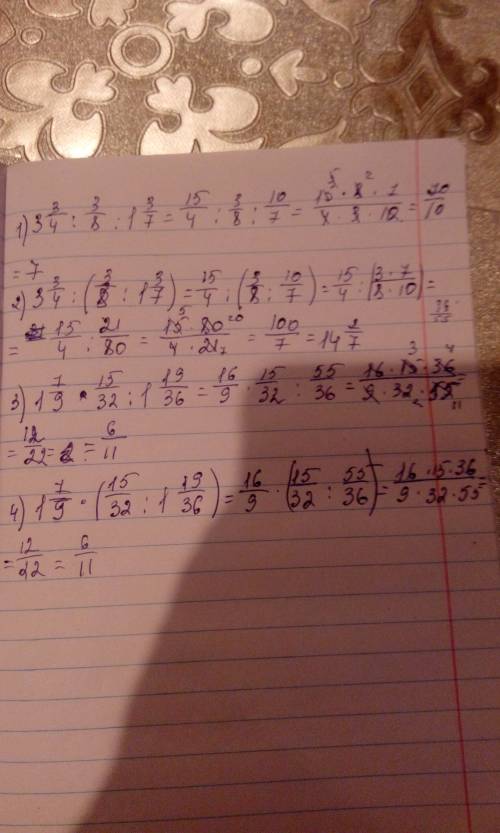 1) 3 3/4 : 3/8 : 1 3/7 = 15/4 : 3/8 : 10/7 = 15 · 8 · 7 / 4 · 3 · 10 = 70/10
= 7
2) 3 3/4 : (3/8 : 1 3/7) = 15/4 : (3/8 : 10/7) = 15/4 : (3 · 7 / 8 · 10) =
= 15/4 : 21/80 = 15 · 80 / 4 · 21 = 100/7 = 14 2/7
3) 1 7/9 · 15/32 : 1 19/36 = 16/9 · 15/32 : 55/36 = 16 · 15 · 36 / 9 · 32 · 55
= 12/22 = 6/11
4) 1 7/9 · (15/32 : 1 19/36) = 16/9 · (15/32 : 55/36) = 16 · 15 · 36 / 9 · 32 · 55
= 12/22 = 6/11